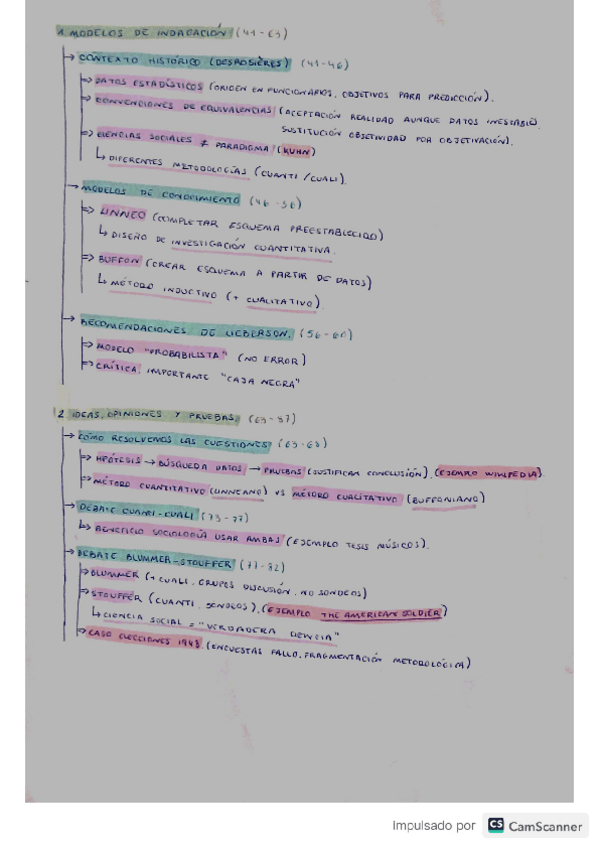 1. MODELOS DE INDAGACIÓN (41-63)
→ CONTEXTO HISTÓRICO (DESROSIÈRES) (41-46)
⇒ DATOS ESTADÍSTICOS (ORIGEN EN FUNCIONARIOS, OBJETIVOS PARA PREDICCIÓN).
⇒ CONVENCIONES DE EQUIVALENCIAS (ACEPTACIÓN REALIDAD AUNQUE DATOS INESTABLE.
SUSTITUCIÓN OBJETIVIDAD POR OBJETIVACIÓN).
⇒ CIENCIAS SOCIALES ≠ PARADIGMA (KUHN)
↳ DIFERENTES METODOLOGÍAS (CUANTI/CUALI).
→ MODELOS DE CONOCIMIENTO (46-56)
⇒ LINNEO (COMPLETAR ESQUEMA PREESTABLECIDO)
↳ DISEÑO DE INVESTIGACIÓN CUANTITATIVA.
⇒ BUFFON (CREAR ESQUEMA A PARTIR DE DATOS)
↳ MÉTODO INDUCTIVO (+ CUALITATIVO).
→ RECOMENDACIONES DE LIEBERSON. (56-60)
⇒ MODELO "PROBABILISTA" (NO ERROR)
⇒ CRÍTICA: IMPORTANTE "CAJA NEGRA"
2 IDEAS, OPINIONES Y PRUEBAS. (63-87)
→ CÓMO RESOLVEMOS LAS CUESTIONES (63-68)
⇒ HIPÓTESIS → BÚSQUEDA DATOS → PRUEBAS (JUSTIFICAR CONCLUSIÓN). (EJEMPLO WIKIPEDIA).
⇒ MÉTODO CUANTITATIVO (LINNEANO) VS MÉTODO CUALITATIVO (BUFFONIANO)
→ DEBATE CUANTI-CUALI (73-77)
↳ BENEFICIO SOCIOLOGÍA USAR AMBAS (EJEMPLO TESIS MÚSICOS).
→ DEBATE BLUMMER-STOUFFER (77-82)
⇒ BLUMMER (+ CUALI, GRUPOS DISCUSIÓN, NO SONDEOS)
⇒ STOUFFER (CUANTI, SONDEOS). (EJEMPLO THE AMERICAN SOLDIER)
↳ CIENCIA SOCIAL = "VERDADERA CIENCIA"
⇒ CASO ELECCIONES 1948. (ENCUESTAS FALLO, FRAGMENTACIÓN METODOLÓGICA)
Impulsado por CS CamScanner